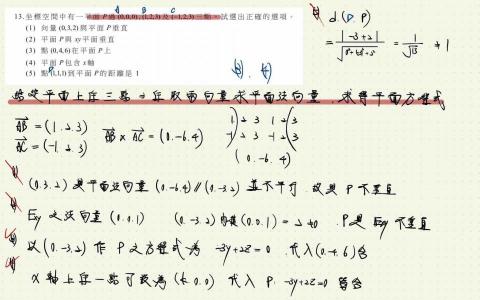 A B C
13.坐標空間中有一平面 P 過(0,0,0),(1,2,3)及(-1,2,3)三點,試選出正確的選項。
(1) 向量(0,3,2)與平面 P 垂直
(2) 平面 P 與 xy 平面垂直
(3) 點(0,4,6)在平面 P 上
(4) 平面 P 包含 x 軸
(5) 點(1,1,1)到平面 P 的距離是 1
d(D, P)
|-3+2| = 1/√13 ≠ 1
給定平面上任三點 任取兩向量求平面法向量,求得平面方程式
AB = (1.2.3)
AC = (-1.2.3)
AB × AC = (0.-6.4)
1 2 3 1 2 3
-1 2 3 -1 2 3
(0.-6.4)
(0.3.2) 是平面法向量 (0.-6.4)∥(0.-3.2) 並不平行 故與 P 不垂直
Exy 之法向量 (0.0.1) (0.-3.2)內積(0.0.1)=2≠0 P與 Exy 不垂直
以 (0.-3.2) 作 P 之方程式為 -3y+2z=0 代入(0.4.6)合
X 軸上任一點可設為 (t.0.0) 代入 P: -3y+2z=0 皆合